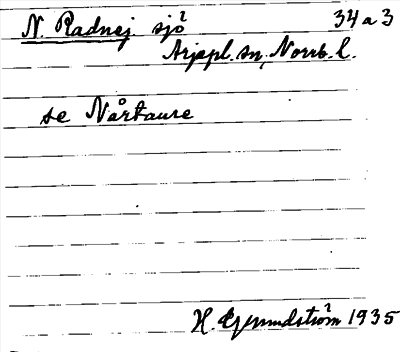 N. Radnej sjö 34 a 3
Arjepl. sn, Norrb. l.
se Nårtaure
H. Grundström 1935